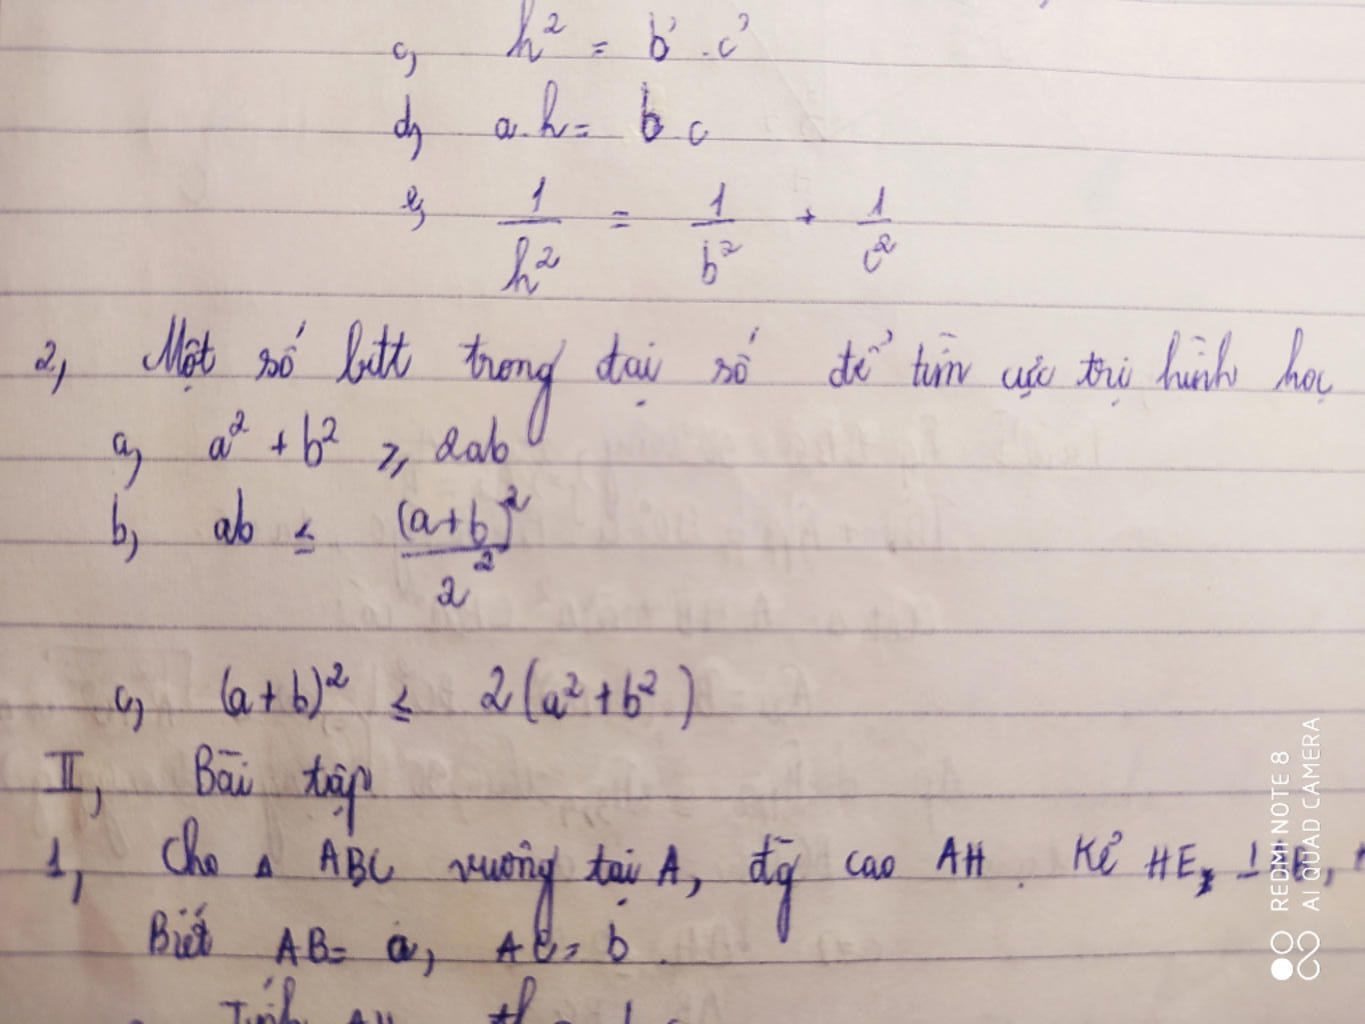 c, h² = b' . c'
d, a.h = b c
e, 1/h² = 1/b² + 1/c²
2, Một số bđtt trong đại số để tìm cực trị hình học
a, a² + b² ≥ 2ab
b, ab ≤ (a+b)²/2²
c, (a+b)² ≤ 2(a²+b²)
II, Bài tập
1, Cho Δ ABC vuông tại A, đg cao AH. Kẻ HE ⊥
Biết AB = a, AC = b.
Tính AH
REDMI NOTE 8
AI QUAD CAMERA